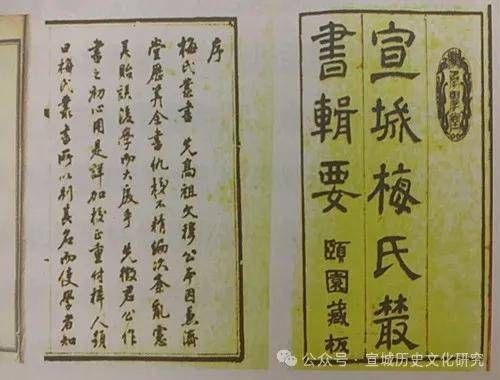 宣城梅氏叢
書輯要 頤園藏板
序
梅氏叢書 先高祖文穆公本因兼濟
堂歷算全書仇校不精編次紊亂慮
其貽誤後學而大戾乎 先徵君公作
書之初心用是詳加校正重付梓人顏
曰梅氏叢書所以別其名而使學者知
公众号 · 宣城历史文化研究